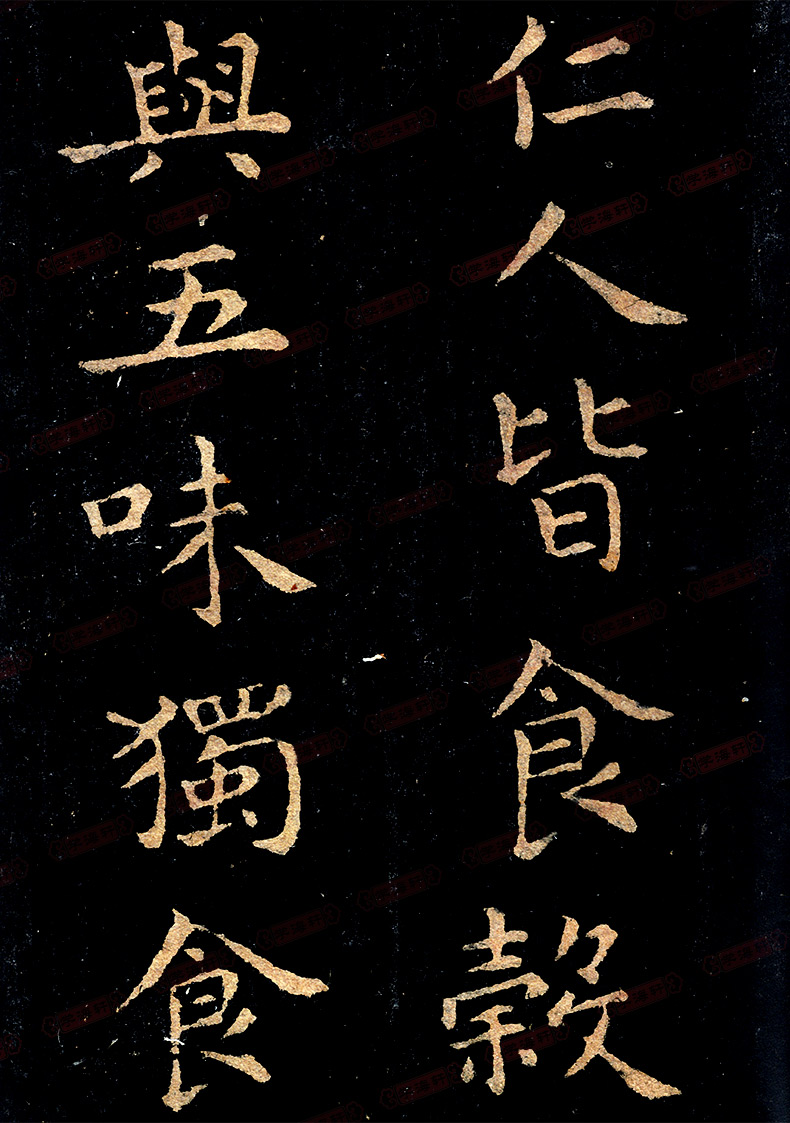 仁人皆食穀
與五味獨食